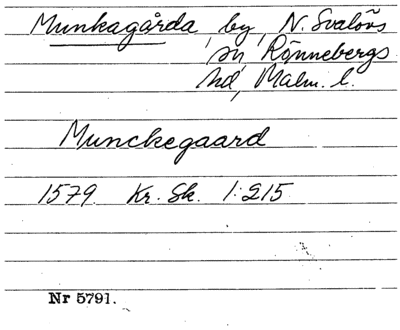 Munkagårda, by, N. Svalövs
sn, Rönnebergs
hd, Malm. l.
Munckegaard
1579 Kr. Sk. 1:215
Nr 5791.